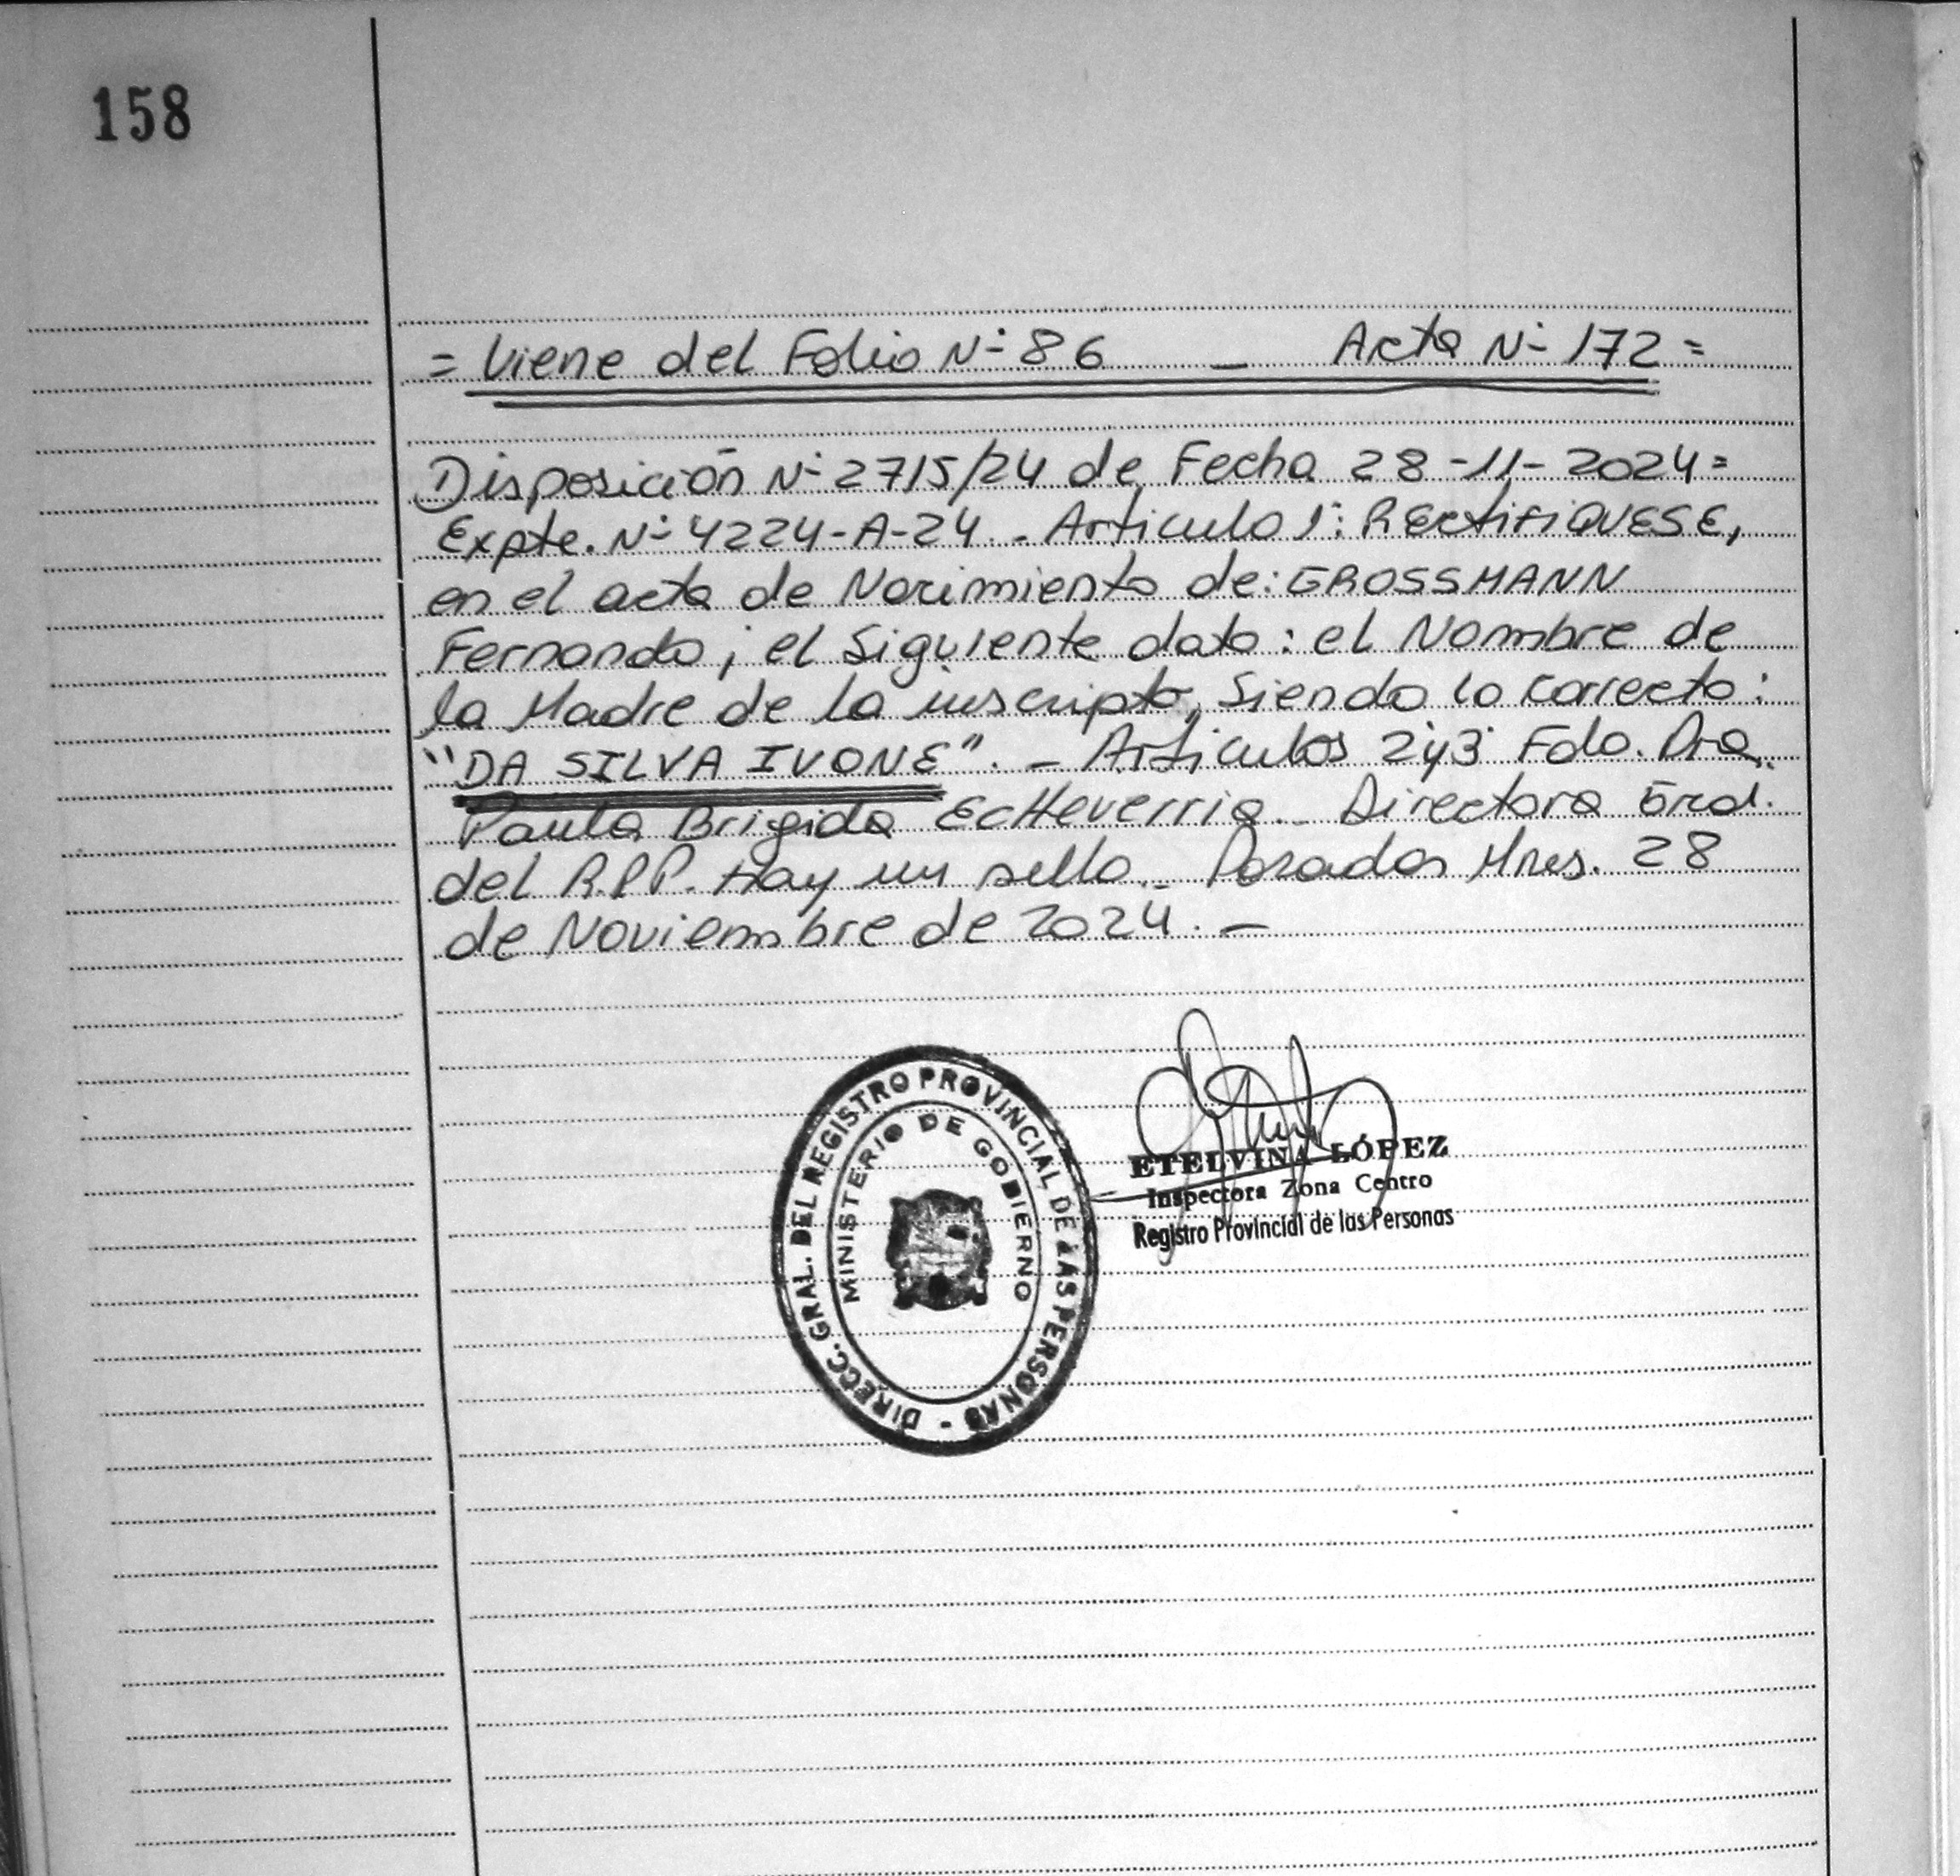 158
= Viene del Folio Nº 86 _ Acta Nº 172 =
Disposición Nº 2715/24 de Fecha 28-11-2024=
Expte. Nº 4224-A-24. - Articulo 1º: RECtiFiQUESE,
en el acta de Nacimiento de: GROSSMANN
Fernando; el Siguiente dato: el Nombre de
la Madre de la inscripta, Siendo lo correcto:
"DA SILVA IVONE". - Articulos 2º y 3º Fdo. Dra.
Paula Brigida EcHeverria._ Directora Gral.
del R.P.P. Hay un sello._ Posadas Mnes. 28
de Noviembre de 2024. _
DIRECC. GRAL. DEL REGISTRO PROVINCIAL DE LAS PERSONAS -
MINISTERIO DE GOBIERNO
ETELVINA LÓPEZ
Inspectora Zona Centro
Registro Provincial de las Personas